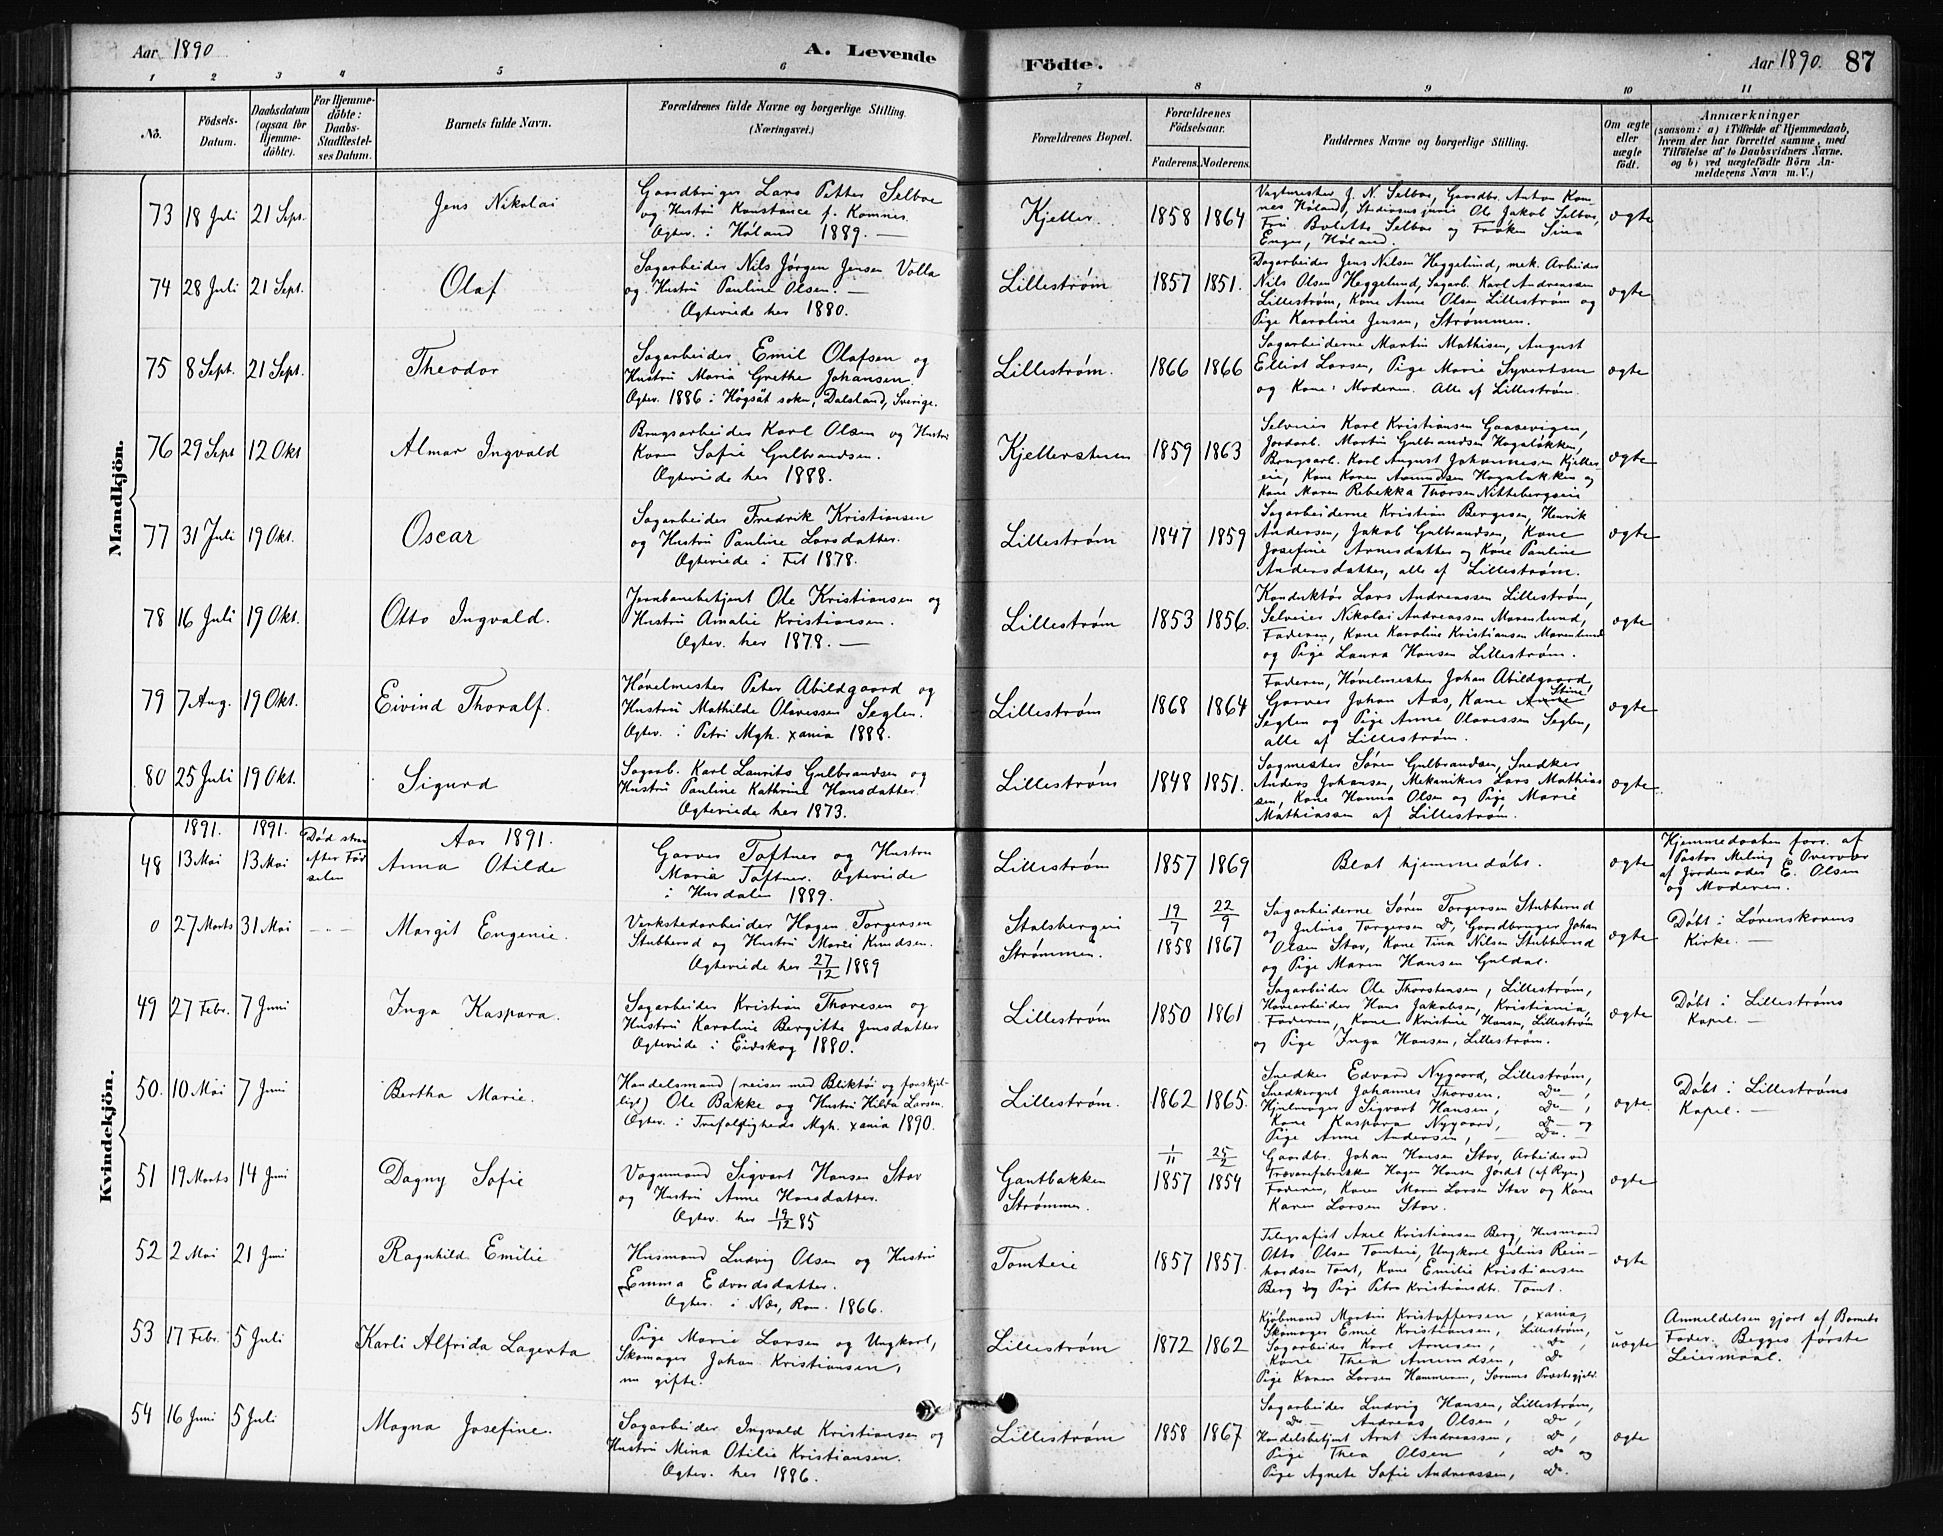 Aar 1890
A. Levende
Födte.
Aar 1890. 87
1 2 3 4 5 6 7 8 9 10 11
No.
Födsels-
Datum.
Daabsdatum
(ogsaa for
Hjemme-
döbte).
For Hjemme-
döbte:
Daabs-
Stadfæstel-
ses Datum.
Barnets fulde Navn.
Forældrenes fulde Navne og borgerlige Stilling.
(Næringsvei.)
Forældrenes Bopæl.
Forældrenes
Födselsaar.
Faderens. Moderens.
Faddernes Navne og borgerlige Stilling.
Om ægte
eller
uægte
födt.
Anmærkninger
(saasom: a) i Tilfælde af Hjemmedaab,
hvem der har forrettet samme, med
Tilföielse af to Daabsvidners Navne.
og b) ved uægtefödte Börn An-
melderens Navn m. V.)
Mandkjön.
73 18 Juli 21 Sept. Jens Nikolai
Gaardbruger Lars Petter Selboe
og Hustru Konstance f. Komnes.
Ægtev. i Høland 1889. —
Kjeller. 1858 1864
Vagtmester J. N. Selboe, Gaardbr. Anton Kom-
nes Høland, Studiosus juris Ole Jakob Selboe,
Fru Bolette Selboe og Frøken Sina
Enger, Høland.
ægte
74 28 Juli 21 Sept. Olaf
Sagarbeider Nils Jørgen Jensen Volla
og Hustru Pauline Olsen. —
Ægteviede her 1880.
Lillestrøm 1857 1851.
Dagarbeider Jens Nilsen Heggelund, mek. Arbeider
Nils Olsen Heggelund, Sagarb. Karl Andreassen
Lillestrøm, Kone Anne Olsen Lillestrøm og
Pige Karoline Jensen, Strømmen.
ægte
75 8 Sept. 21 Sept. Theodor
Sagarbeider Emil Olafsen og
Hustru Maria Grethe Johansen.
Ægtev. 1886 i Högsät sokn, Dalsland, Sverige.
Lillestrøm. 1866 1866
Sagarbeiderne Martin Mathisen, August
Elliot Larsen, Pige Marie Syvertsen
og Kone: Moderen. Alle af Lillestrøm.
ægte
76 29 Sept 12 Okt Almar Ingvald
Brugsarbeider Karl Olsen og Hustru
Karen Sofie Gulbrandsen.
Ægteviede her 1888.
Kjellersteien 1859 1863
Selveier Karl Kristiansen Gaasevigen,
Jordarb. Martin Gulbrandsen Hagaløkken,
Brugsarb. Karl August Johannesen Kjeller
eie, Kone Karen Amundsen Hagaløkken og
Kone Maren Rebekka Thorsen Nittebergseie
ægte
77 31 Juli 19 Okt. Oscar
Sagarbeider Fredrik Kristiansen
og Hustru Pauline Larsdatter.
Ægteviede i Fet 1878.
Lillestrøm 1847 1859
Sagarbeiderne Kristian Bergesen, Henrik
Andersen, Jakob Gulbrandsen, Kone
Josefine Arnesdatter og Kone Pauline
Andersdatter, alle af Lillestrøm.
ægte
78 16 Juli 19 Okt. Otto Ingvald.
Jernbanebetjent Ole Kristiansen og
Hustru Amalie Kristiansen.
Ægtev. her 1878. —
Lillestrøm 1853 1856.
Konduktør Lars Andreassen Lillestrøm,
Selveier Nikolai Andreassen Marenlund,
Faderen, Kone Karoline Kristiansen Marenlund
og Pige Laura Hansen Lillestrøm.
ægte
79 7 Aug. 19 Okt. Eivind Thoralf.
Høvelmester Peter Abildgaard og
Hustru Mathilde Olavessen Seglen.
Ægtev. i Petri Mgh. xania 1888.
Lillestrøm 1868 1864
Faderen, Høvelmester Johan Abildgaard,
Garver Johan Aas, Kone Stine
Seglen og Pige Anne Olavessen Seglen,
alle af Lillestrøm.
ægte
80 25 Juli 19 Okt. Sigurd
Sagarb. Karl Laurits Gulbrandsen og
Hustru Pauline Kathrine Hansdatter.
Ægteviede her 1873.
Lillestrøm 1848 1851.
Sagmester Søren Gulbrandsen, Snedker
Anders Johansen, Mekanikus Lars Mathias
sen, Kone Hanna Olsen og Pige Marie
Mathiassen af Lillestrøm.
ægte
Kvindekjön.
1891. 1891. Aar 1891.
48 13 Mai 13 Mai
Død strax
efter Fød
selen
Anna Otilde
Garver Toftner og Hustru
Maria Toftner. Ægteviede
i Hurdalen 1889.
Lillestrøm 1857 1869
Blot hjemmedøbt.
ægte
Hjemmedaaben forr. af
Pastor Meling i Overvær
af Jordemoder E. Olsen
og Moderen.
0 27 Marts 31 Mai - - - Margit Eugenie.
Verkstedarbeider Hagen Torgersen
Stubberud og Hustru Marie Knudsen.
Ægteviede her 27/12 1889
Stalsbergeie
Strømmen.
19/7 1858 22/9 1867
Sagarbeiderne Søren Torgersen Stubberud
og Julius Torgersen Do, Gaardbruger Johan
Olsen Stav, Kone Tina Nilsen Stubberud
og Pige Maren Hansen Guldal.
ægte
Døbt i Lørenskovens
Kirke. —
49 27 Febr. 7 Juni Inga Kaspara.
Sagarbeider Kristian Thoresen og
Hustru Karoline Bergitte Jensdatter
Ægteviede i Eidskog 1880.
Lillestrøm 1850 1861
Sagarbeider Ole Thorstensen, Lillestrøm,
Havearbeider Hans Jakobsen, Kristiania,
Faderen, Kone Kristine Hansen, Lillestrøm
og Pige Inga Hansen, Lillestrøm.
ægte
Døbt i Lillestrøms
Kapel. —
50. 10 Mai 7 Juni Bertha Marie.
Handelsmand (reiser med Bliktøi og forskjel-
ligt) Ole Bakke og Hustru Hilda Larsen.
Ægtev. i Trefoldigheds Mgh. xania 1890.
Lillestrøm. 1862 1865.
Snedker Edvard Nygaard, Lillestrøm,
Snedkergut Johannes Thorsen, Do — ,
Hjulmager Sigvart Hansen, Do — ,
Kone Kaspara Nygaard, Do — og
Pige Anne Andersen, — Do. —
ægte
Døbt i Lillestrøms
Kapel. —
51 19 Marts 14 Juni Dagny Sofie
Vognmand Sigvart Hansen Stav
og Hustru Anne Hansdatter.
Ægtev. her 19/12 85
Gautbakken
Strømmen.
1/11 1857 25/2 1854
Gaardbr. Johan Hansen Stav, Arbeider ved
Trævarefabriken Hagen Hansen Jordt (af Ryen)
Faderen, Konen Maren Larsen Stav og Kone
Karen Larsen Stav.
ægte
52 2 Mai 21 Juni Ragnhild Emilie
Husmand Ludvig Olsen og Hustru
Emma Edvardsdatter.
Ægtev. i Næs, Rom. 1866.
Tomteie 1857 1857.
Telegrafist Axel Kristiansen Berg, Husmand
Otto Olsen Tomteie, Ungkarl Julius Rein-
hardsen Tomt, Kone Emilie Kristiansen
Berg og Pige Petra Kristiansdtr. Tomt.
ægte
53 17 Febr. 5 Juli Karli Alfrida Lagerta
Pige Marie Larsen og Ungkarl,
Skomager Johan Kristiansen,
nu gifte.
Lillestrøm 1872 1862
Kjøbmand Martin Kristoffersen, xania,
Skomager Emil Kristiansen, Lillestrøm,
Sagarbeider Karl Arnesen, Do ,
Kone Thea Amundsen, Do
Pige Karen Larsen Hammeren, Sørums Præstegjeld.
uægte
Anmeldelsen gjort af Barnets
Fader. Begges første
Leiermaal.
54 16 Juni 5 Juli Magna Josefine.
Sagarbeider Ingvald Kristiansen og
Hustru Mina Otilie Kristiansen.
Ægtev. her 1886.
Lillestrøm 1858 1867
Sagarbeider Ludvig Hansen, Lillestrøm,
Do — Andreas Olsen, Do ,
Handelsbetjent Arnt Andreassen, Do ,
Pige Thea Olsen , Do og
Pige Agnete Sofie Andreassen, Do.
ægte